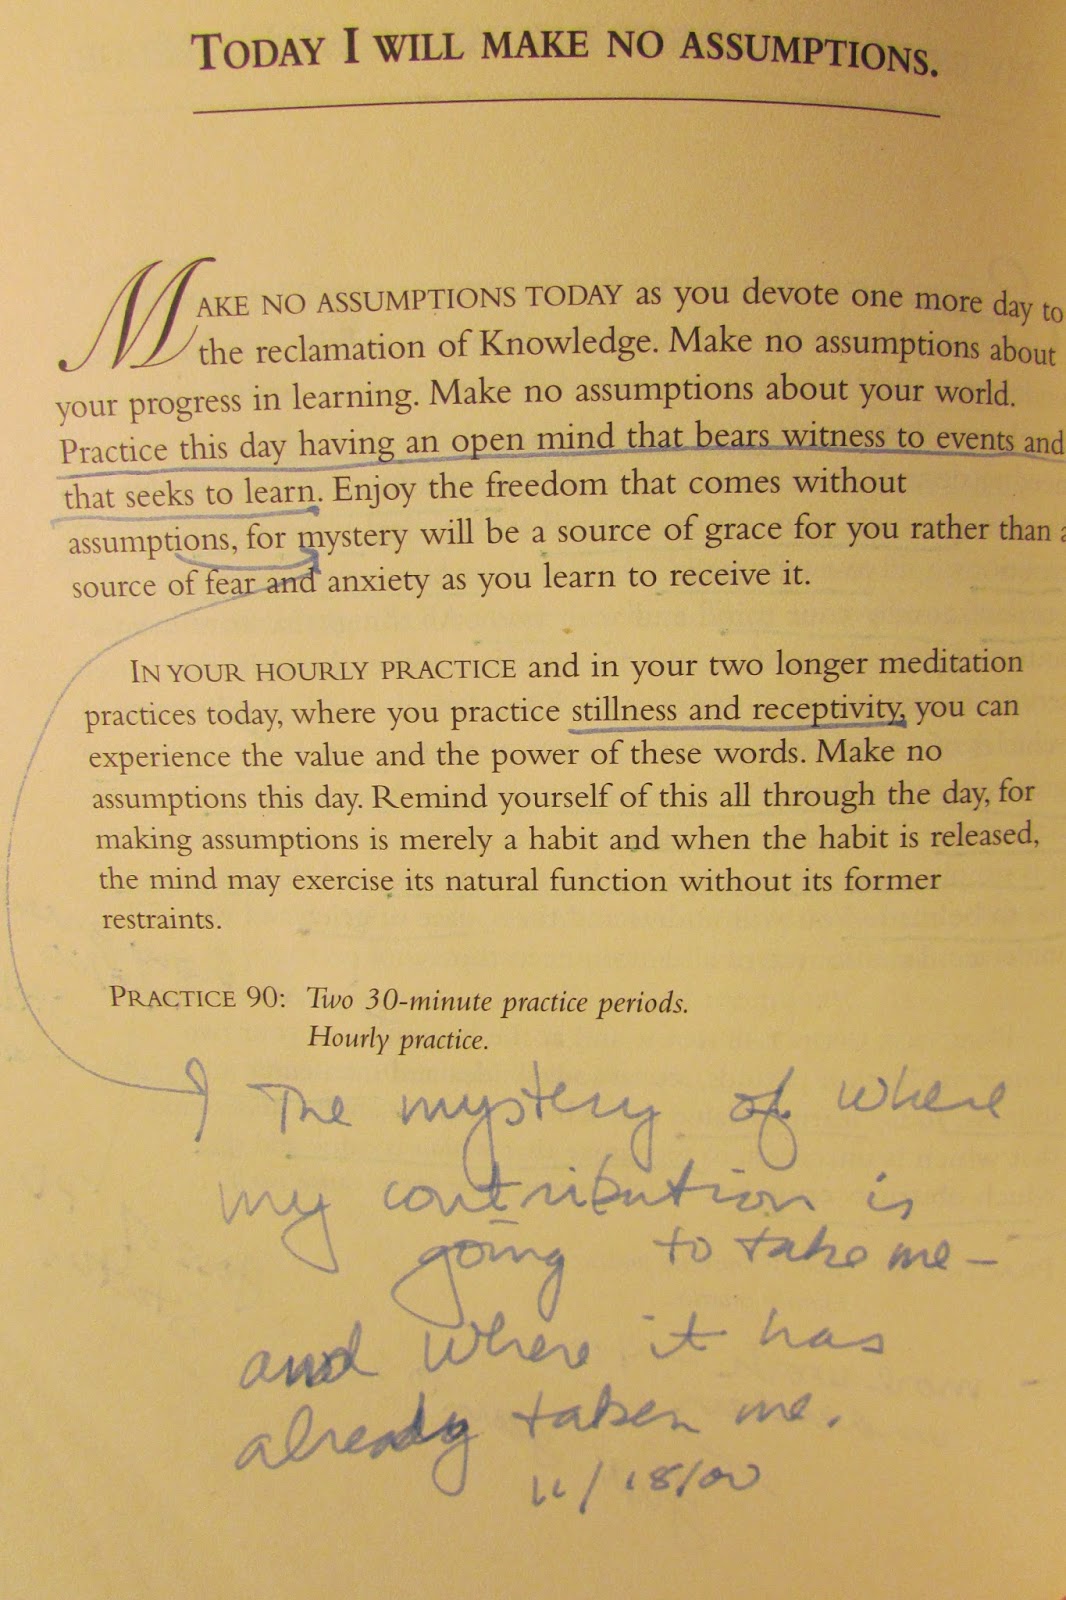 TODAY I WILL MAKE NO ASSUMPTIONS.
MAKE NO ASSUMPTIONS TODAY as you devote one more day to
the reclamation of Knowledge. Make no assumptions about
your progress in learning. Make no assumptions about your world.
Practice this day having an open mind that bears witness to events and
that seeks to learn. Enjoy the freedom that comes without
assumptions, for mystery will be a source of grace for you rather than a
source of fear and anxiety as you learn to receive it.
IN YOUR HOURLY PRACTICE and in your two longer meditation
practices today, where you practice stillness and receptivity, you can
experience the value and the power of these words. Make no
assumptions this day. Remind yourself of this all through the day, for
making assumptions is merely a habit and when the habit is released,
the mind may exercise its natural function without its former
restraints.
PRACTICE 90: Two 30-minute practice periods.
Hourly practice.
The mystery of where
my contribution is
going to take me –
and where it has
already taken me.
11/18/00